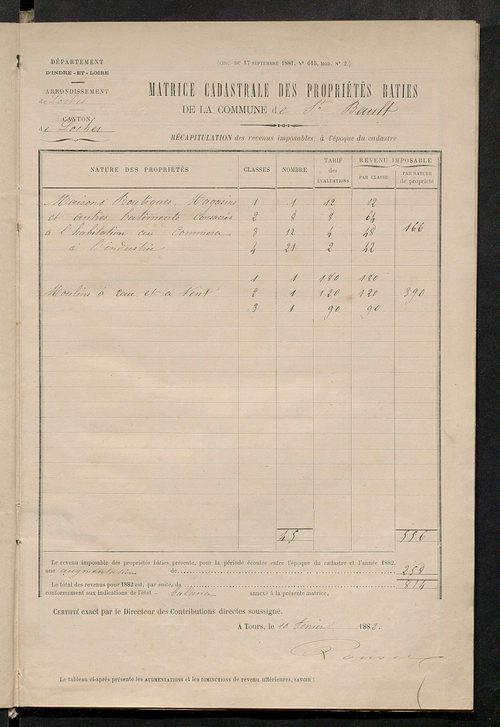 DÉPARTEMENT
D'INDRE-ET-LOIRE
ARRONDISSEMENT
de Loches
CANTON
de Loches
(CIRC. DU 17 SEPTEMBRE 1881, N° 615, MOD. N° 2.)
MATRICE CADASTRALE DES PROPRIÉTÉS BATIES
DE LA COMMUNE de St Bault
RÉCAPITULATION des revenus imposables, à l'époque du cadastre
NATURE DES PROPRIÉTÉS CLASSES NOMBRE TARIF des ÉVALUATIONS REVENU IMPOSABLE
PAR CLASSE PAR NATURE de propriété
Maisons Boutiques, Magasins 1 1 12 12
et autres batiments consacrés 2 8 8 64
à l'habitation au Commerce 3 12 4 48 166
à l'industrie 4 21 2 42
1 1 180 180
Moulins à eau et à Vent 2 1 120 120 390
3 1 90 90
45 556
Le revenu imposable des propriétés bâties présente, pour la période écoulée entre l'époque du cadastre et l'année 1882,
une augmentation de 258
Le total des revenus pour 1882 est, par suite, de 814
conformément aux indications de l'état annexé à la présente matrice.
CERTIFIÉ exact par le Directeur des Contributions directes soussigné.
A Tours, le 10 février 1882.
Le tableau ci-après présente les AUGMENTATIONS et les DIMINUTIONS de revenu ultérieures, SAVOIR :